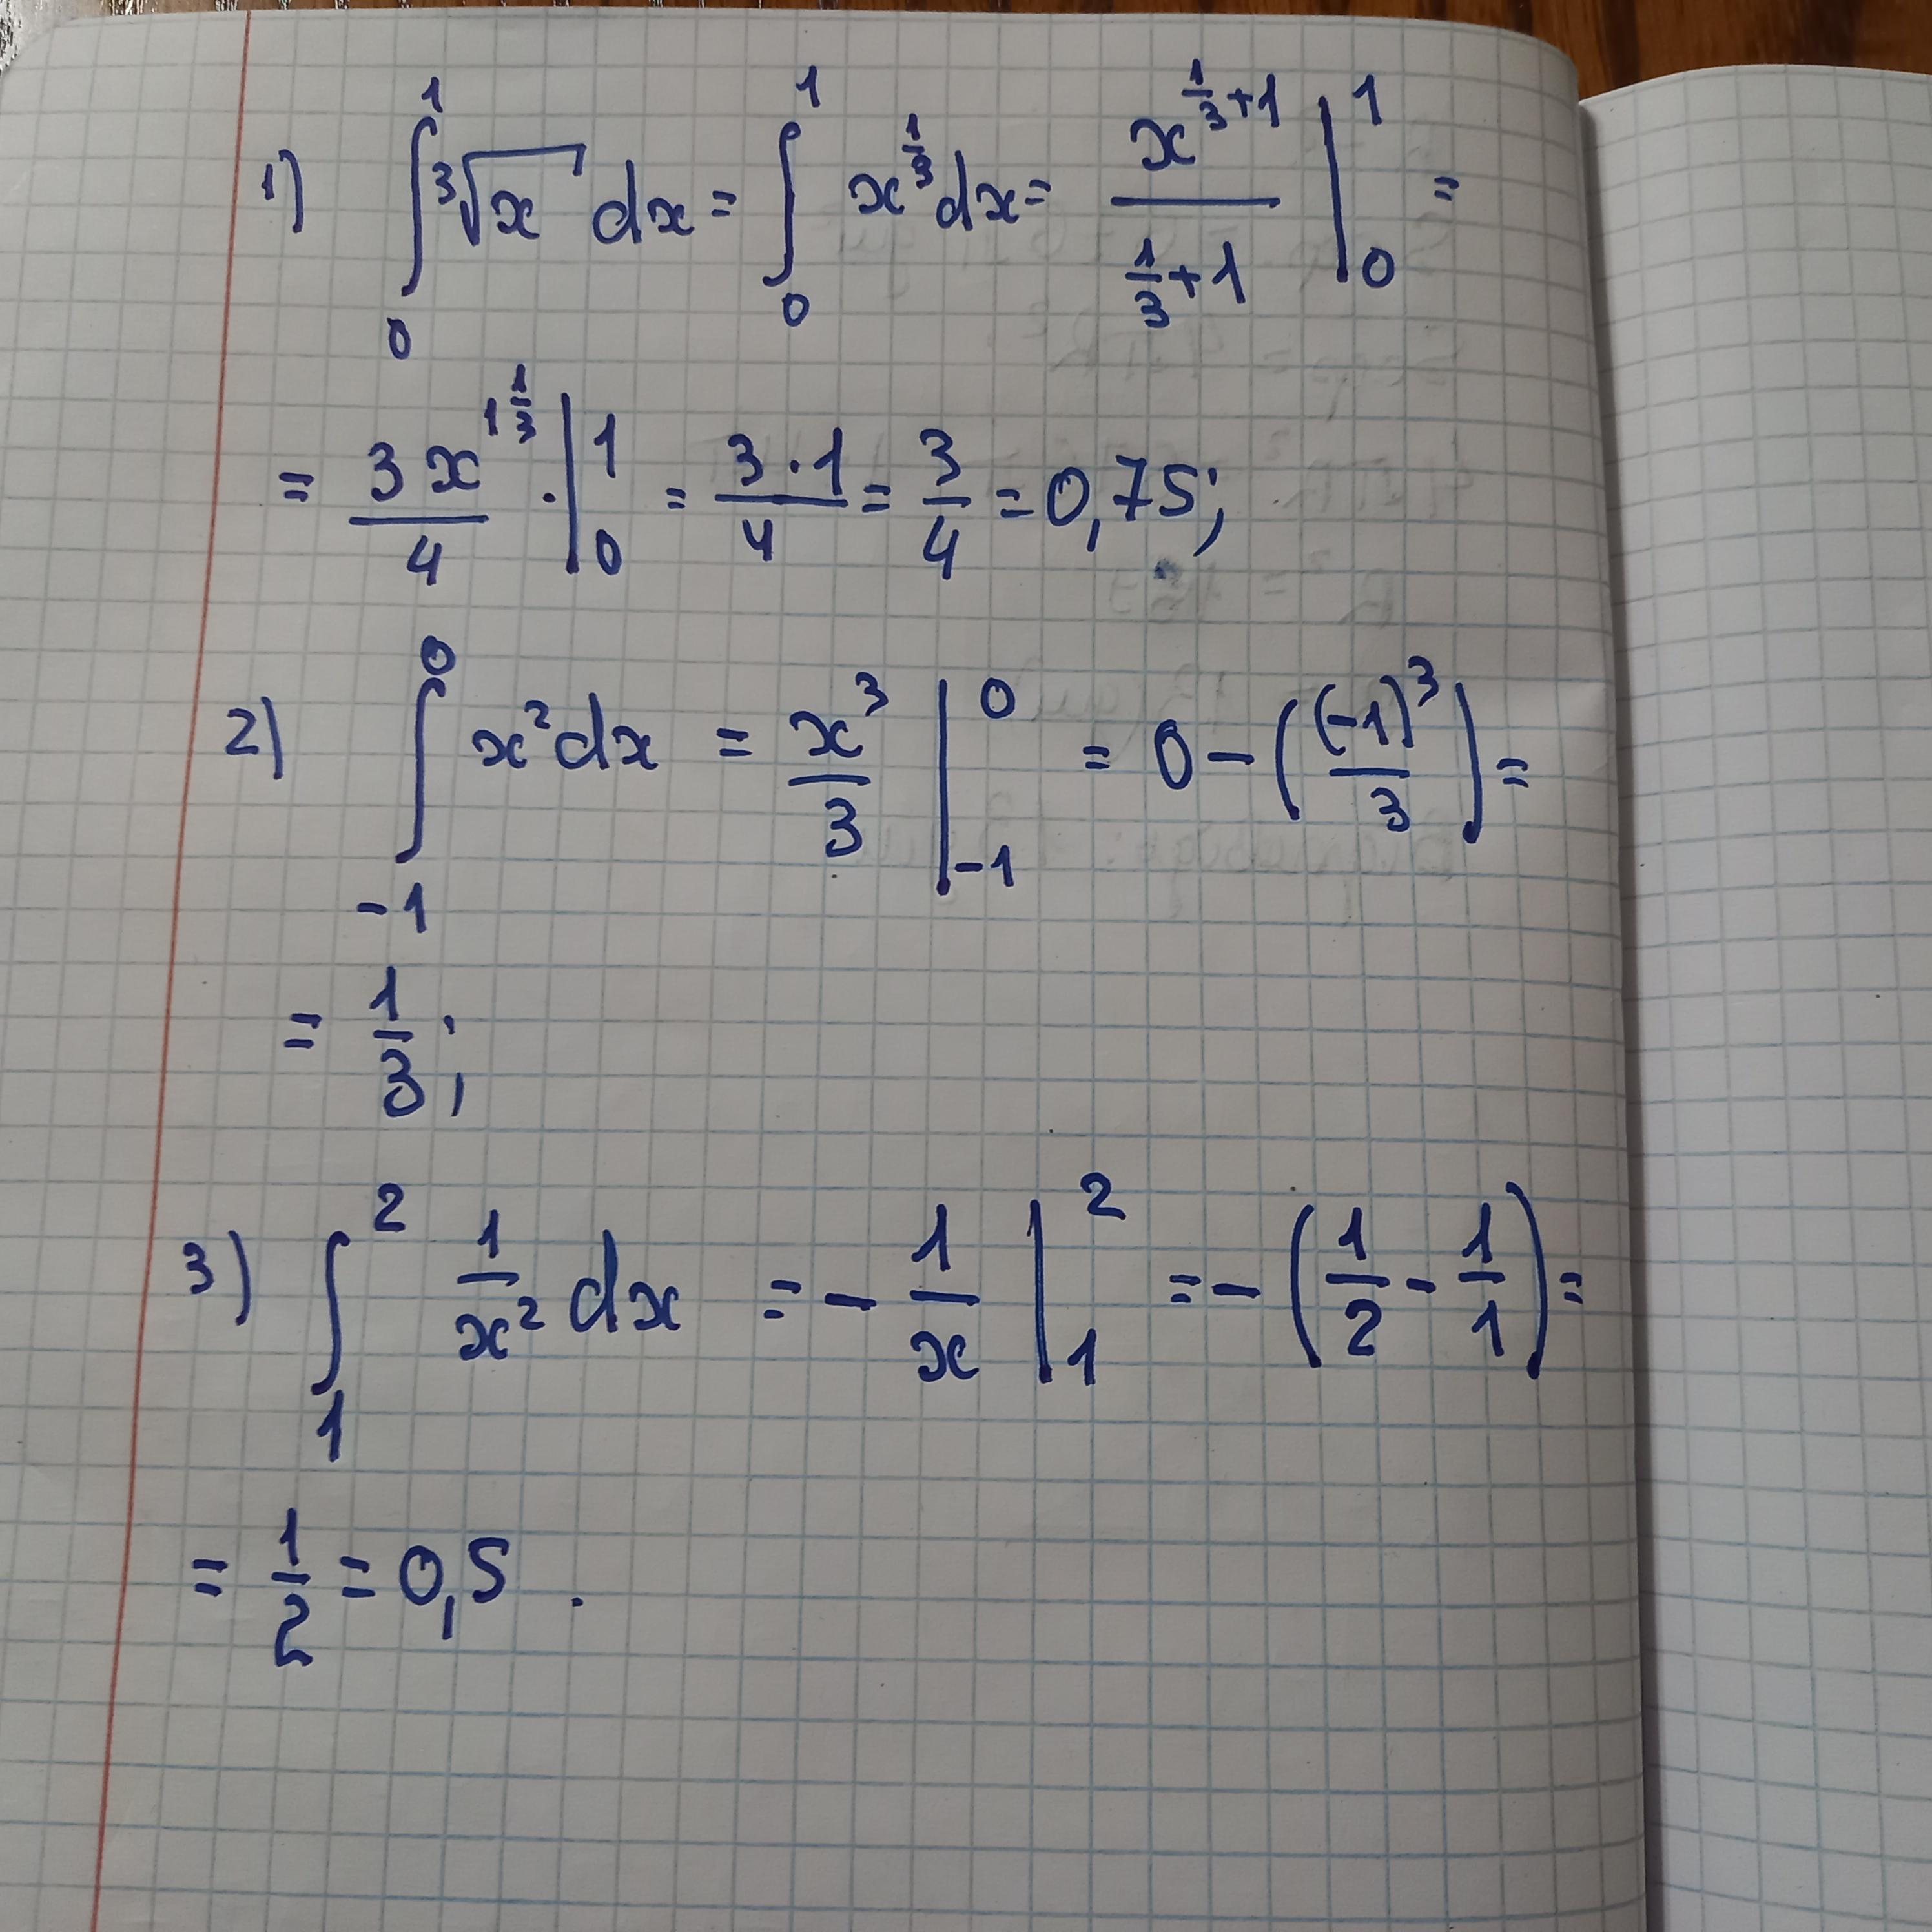 1) ∫₀¹ ∛x dx = ∫₀¹ x^(1/3) dx = x^(1/3+1) / (1/3+1) |₀¹ =
= 3x^(1 1/3) / 4 · |₀¹ = 3·1/4 = 3/4 = 0,75;
2) ∫₋₁⁰ x² dx = x³/3 |₋₁⁰ = 0 - ((-1)³/3) =
= 1/3;
3) ∫₁² 1/x² dx = - 1/x |₁² = - (1/2 - 1/1) =
= 1/2 = 0,5 .